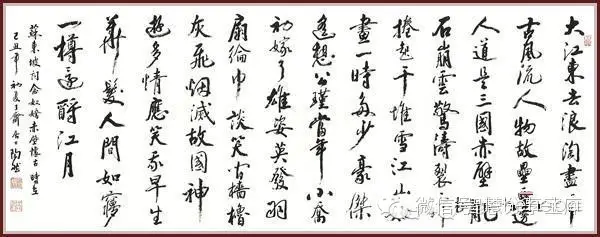 大江東去浪淘盡千
古風流人物故壘西邊
人道是三國赤壁亂
石崩雲驚濤裂岸
捲起千堆雪江山如
畫一時多少豪傑
遙想公瑾當年小喬
初嫁了雄姿英發羽
扇綸巾談笑間檣櫓
灰飛烟滅故國神
遊多情應笑我早生
華髮人間如夢
一樽還酹江月
蘇東坡詞念奴嬌赤壁懷古時在
己丑年初夏俞
微信号